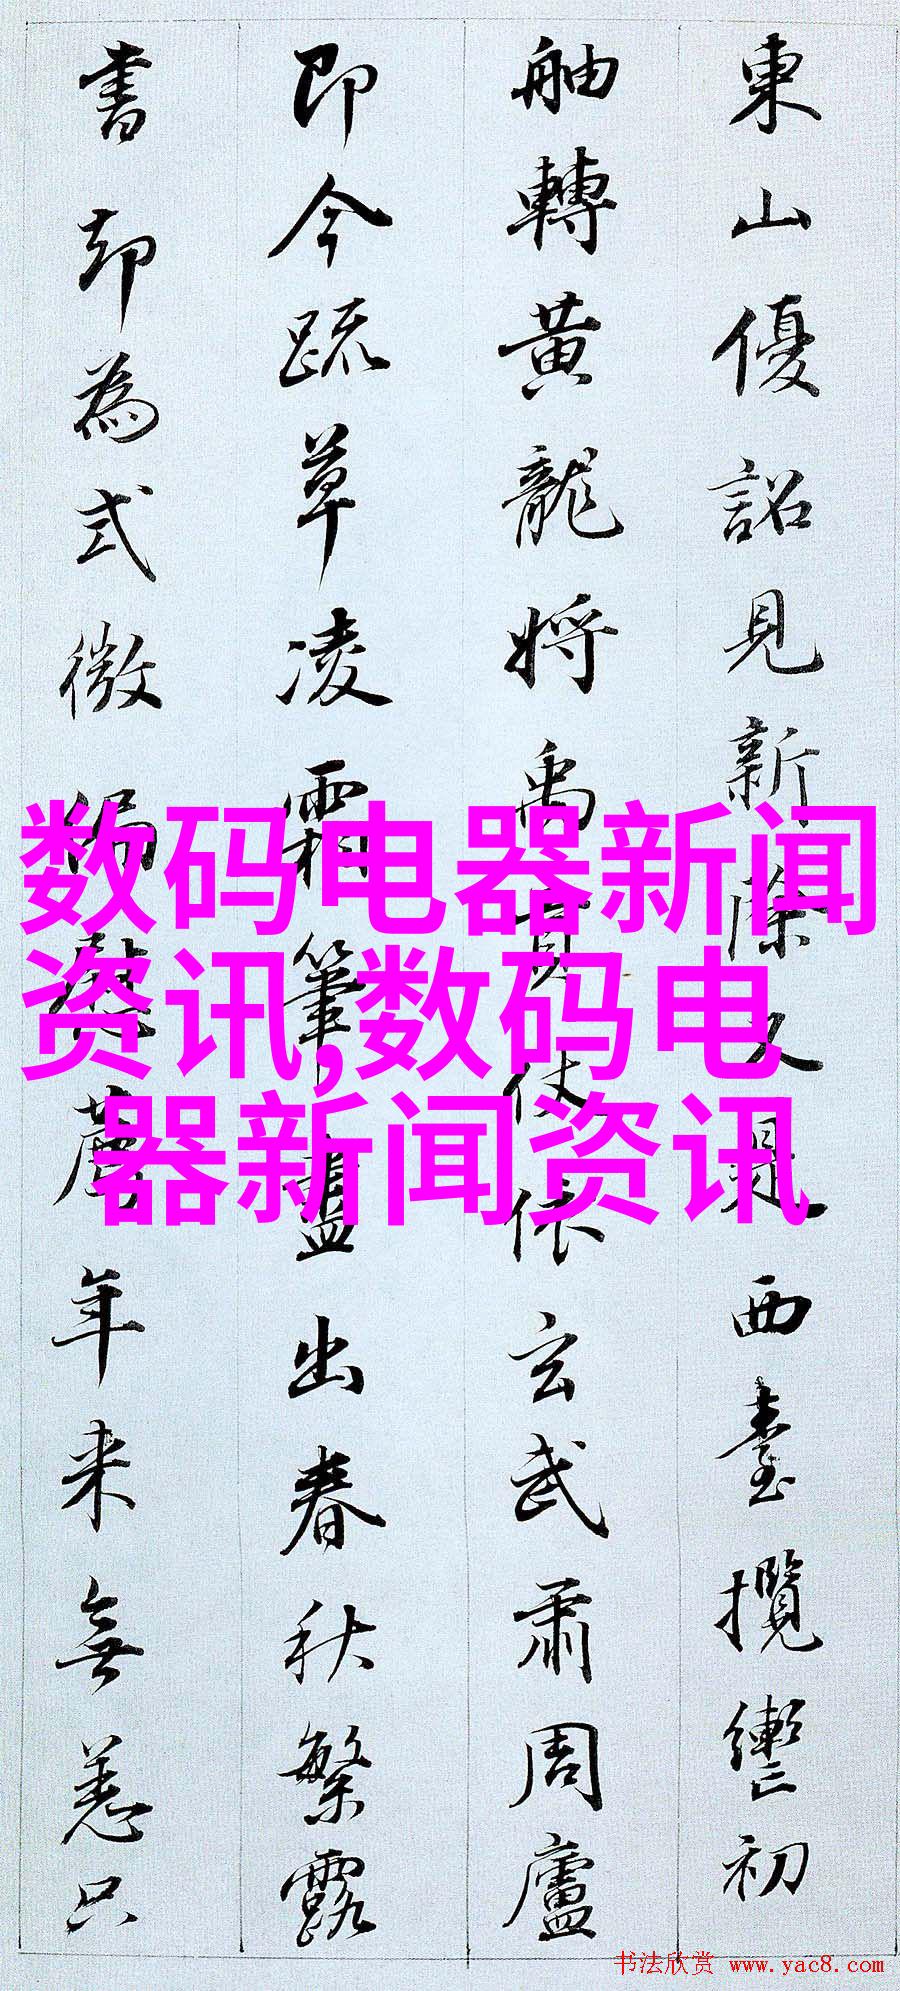 東山優詔見新除人是西臺攬轡初
舳轉黃龍將禹貢仗依玄武肅周廬
即今疏草凌霜筆盡出春秋繁露
書却為式微偏年来無恙只
数码电器新闻
资讯,数码电
器新闻资讯
书法欣赏 www.yac8.com